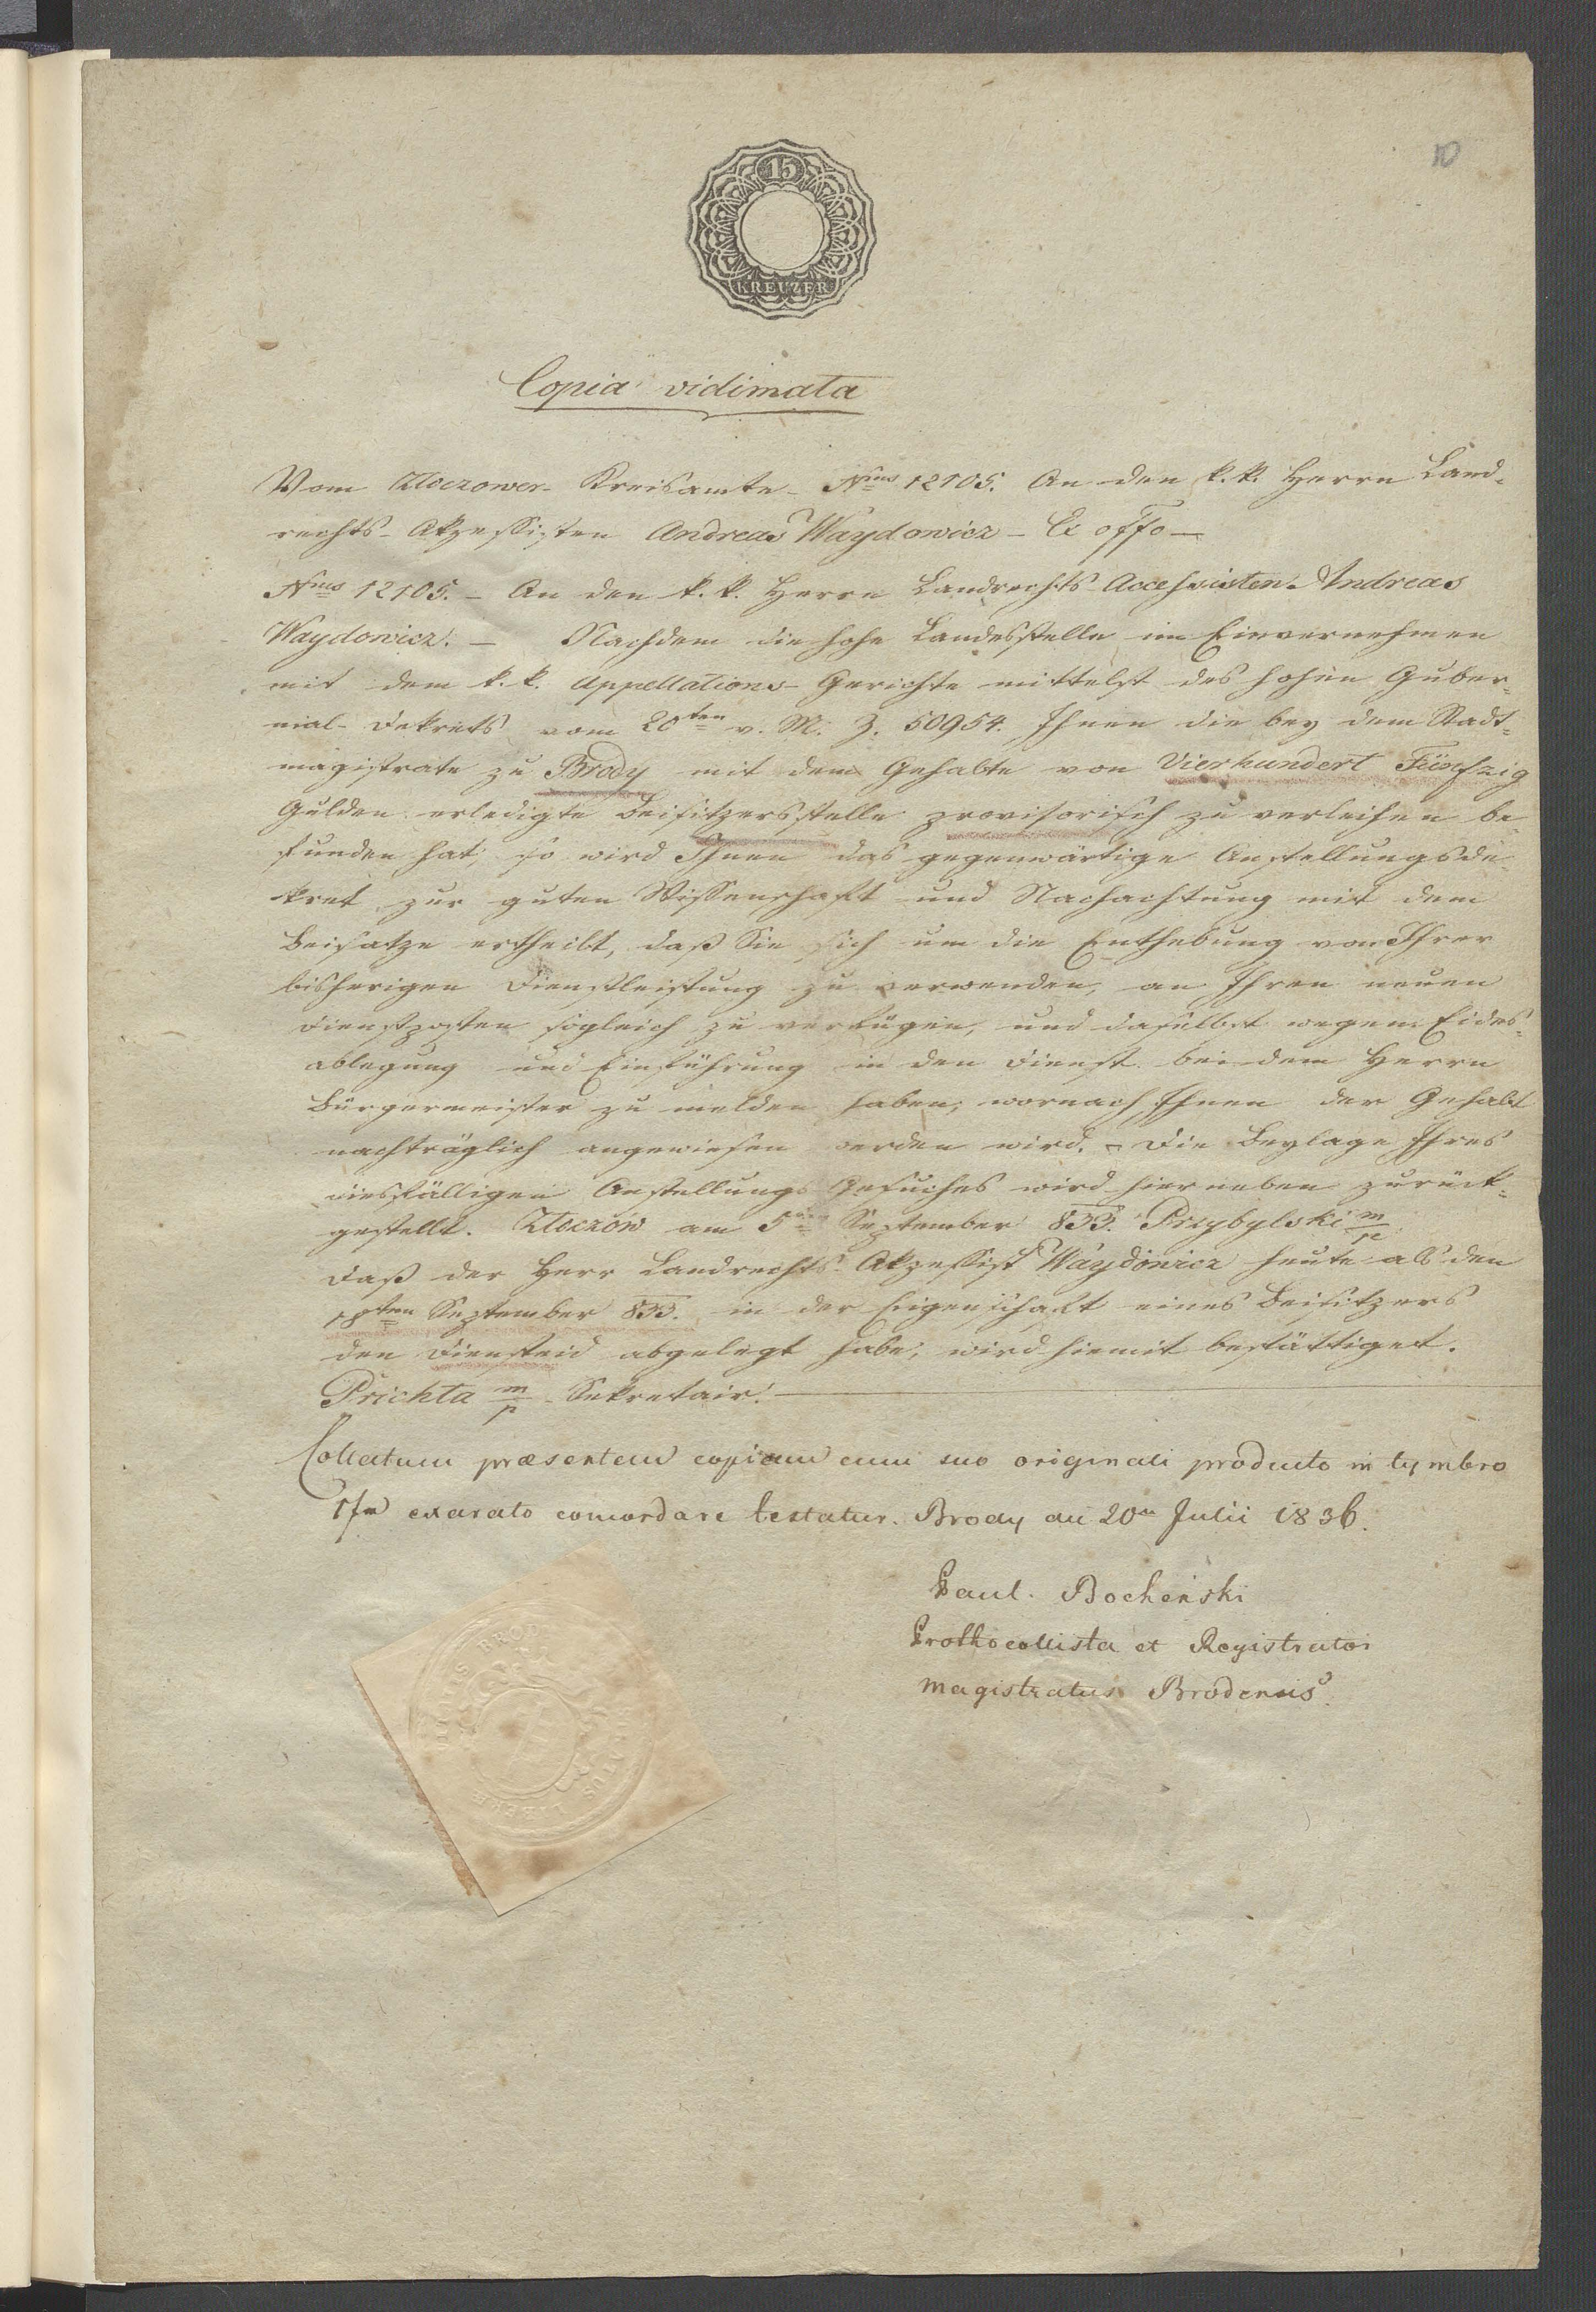 10
15
KREUZER
Copia vidimata
Vom Zloczower Kreisamte Nrus 12105. An den k. k. Herrn Land-
rechts-Akzessisten Andreas Waydowicz – Ex offo –
Nrus 12105. – An den k. k. Herrn Landrechts-Accessisten Andreas
Waydowicz. – Nachdem die hohe Landesstelle im Einvernehmen
mit dem k. k. Appellations-Gerichte mittelst des hohen Guber-
nial-Dekrets vom 20ten v. M. Z. 50954. Ihnen die bey dem Stadt-
magistrate zu Brody mit dem Gehalte von Vierhundert Fünfzig
Gulden erledigte Beisitzersstelle provisorisch zu verleihen be-
funden hat, so wird Ihnen das gegenwärtige Anstellungsde-
kret zur guten Wissenschaft und Nachachtung mit dem
Beisatze ertheilt, daß Sie sich um die Enthebung von Ihrer
bisherigen Dienstleistung zu verwenden, an Ihren neuen
Dienstposten sogleich zu verfügen, und daselbst wegen Eides-
ablegung und Einführung in den Dienst bei dem Herrn
Bürgermeister zu melden haben, wornach Ihnen der Gehalt
nachträglich angewiesen werden wird. – Die Beylage Ihres
diesfälligen Anstellungs Gesuches wird hierneben zurück-
gestellt. Zloczów am 5ten September 833. Przybylski m/p
Daß der Herr Landrechts-Akzessist Waydowicz heute als den
18ten September 833. in der Eigenschaft eines Beisitzers
den Diensteid abgelegt habe, wird hiemit bestättiget.
Prichta m/p Sekretair.
Collatum præsentem copiam cum suo originali producto in tymbro
exarato concordare testatur. Brody die 20a Julii 1836.
Paul. Bocheński
Prothocollista et Registrator
Magistratus Brodensis